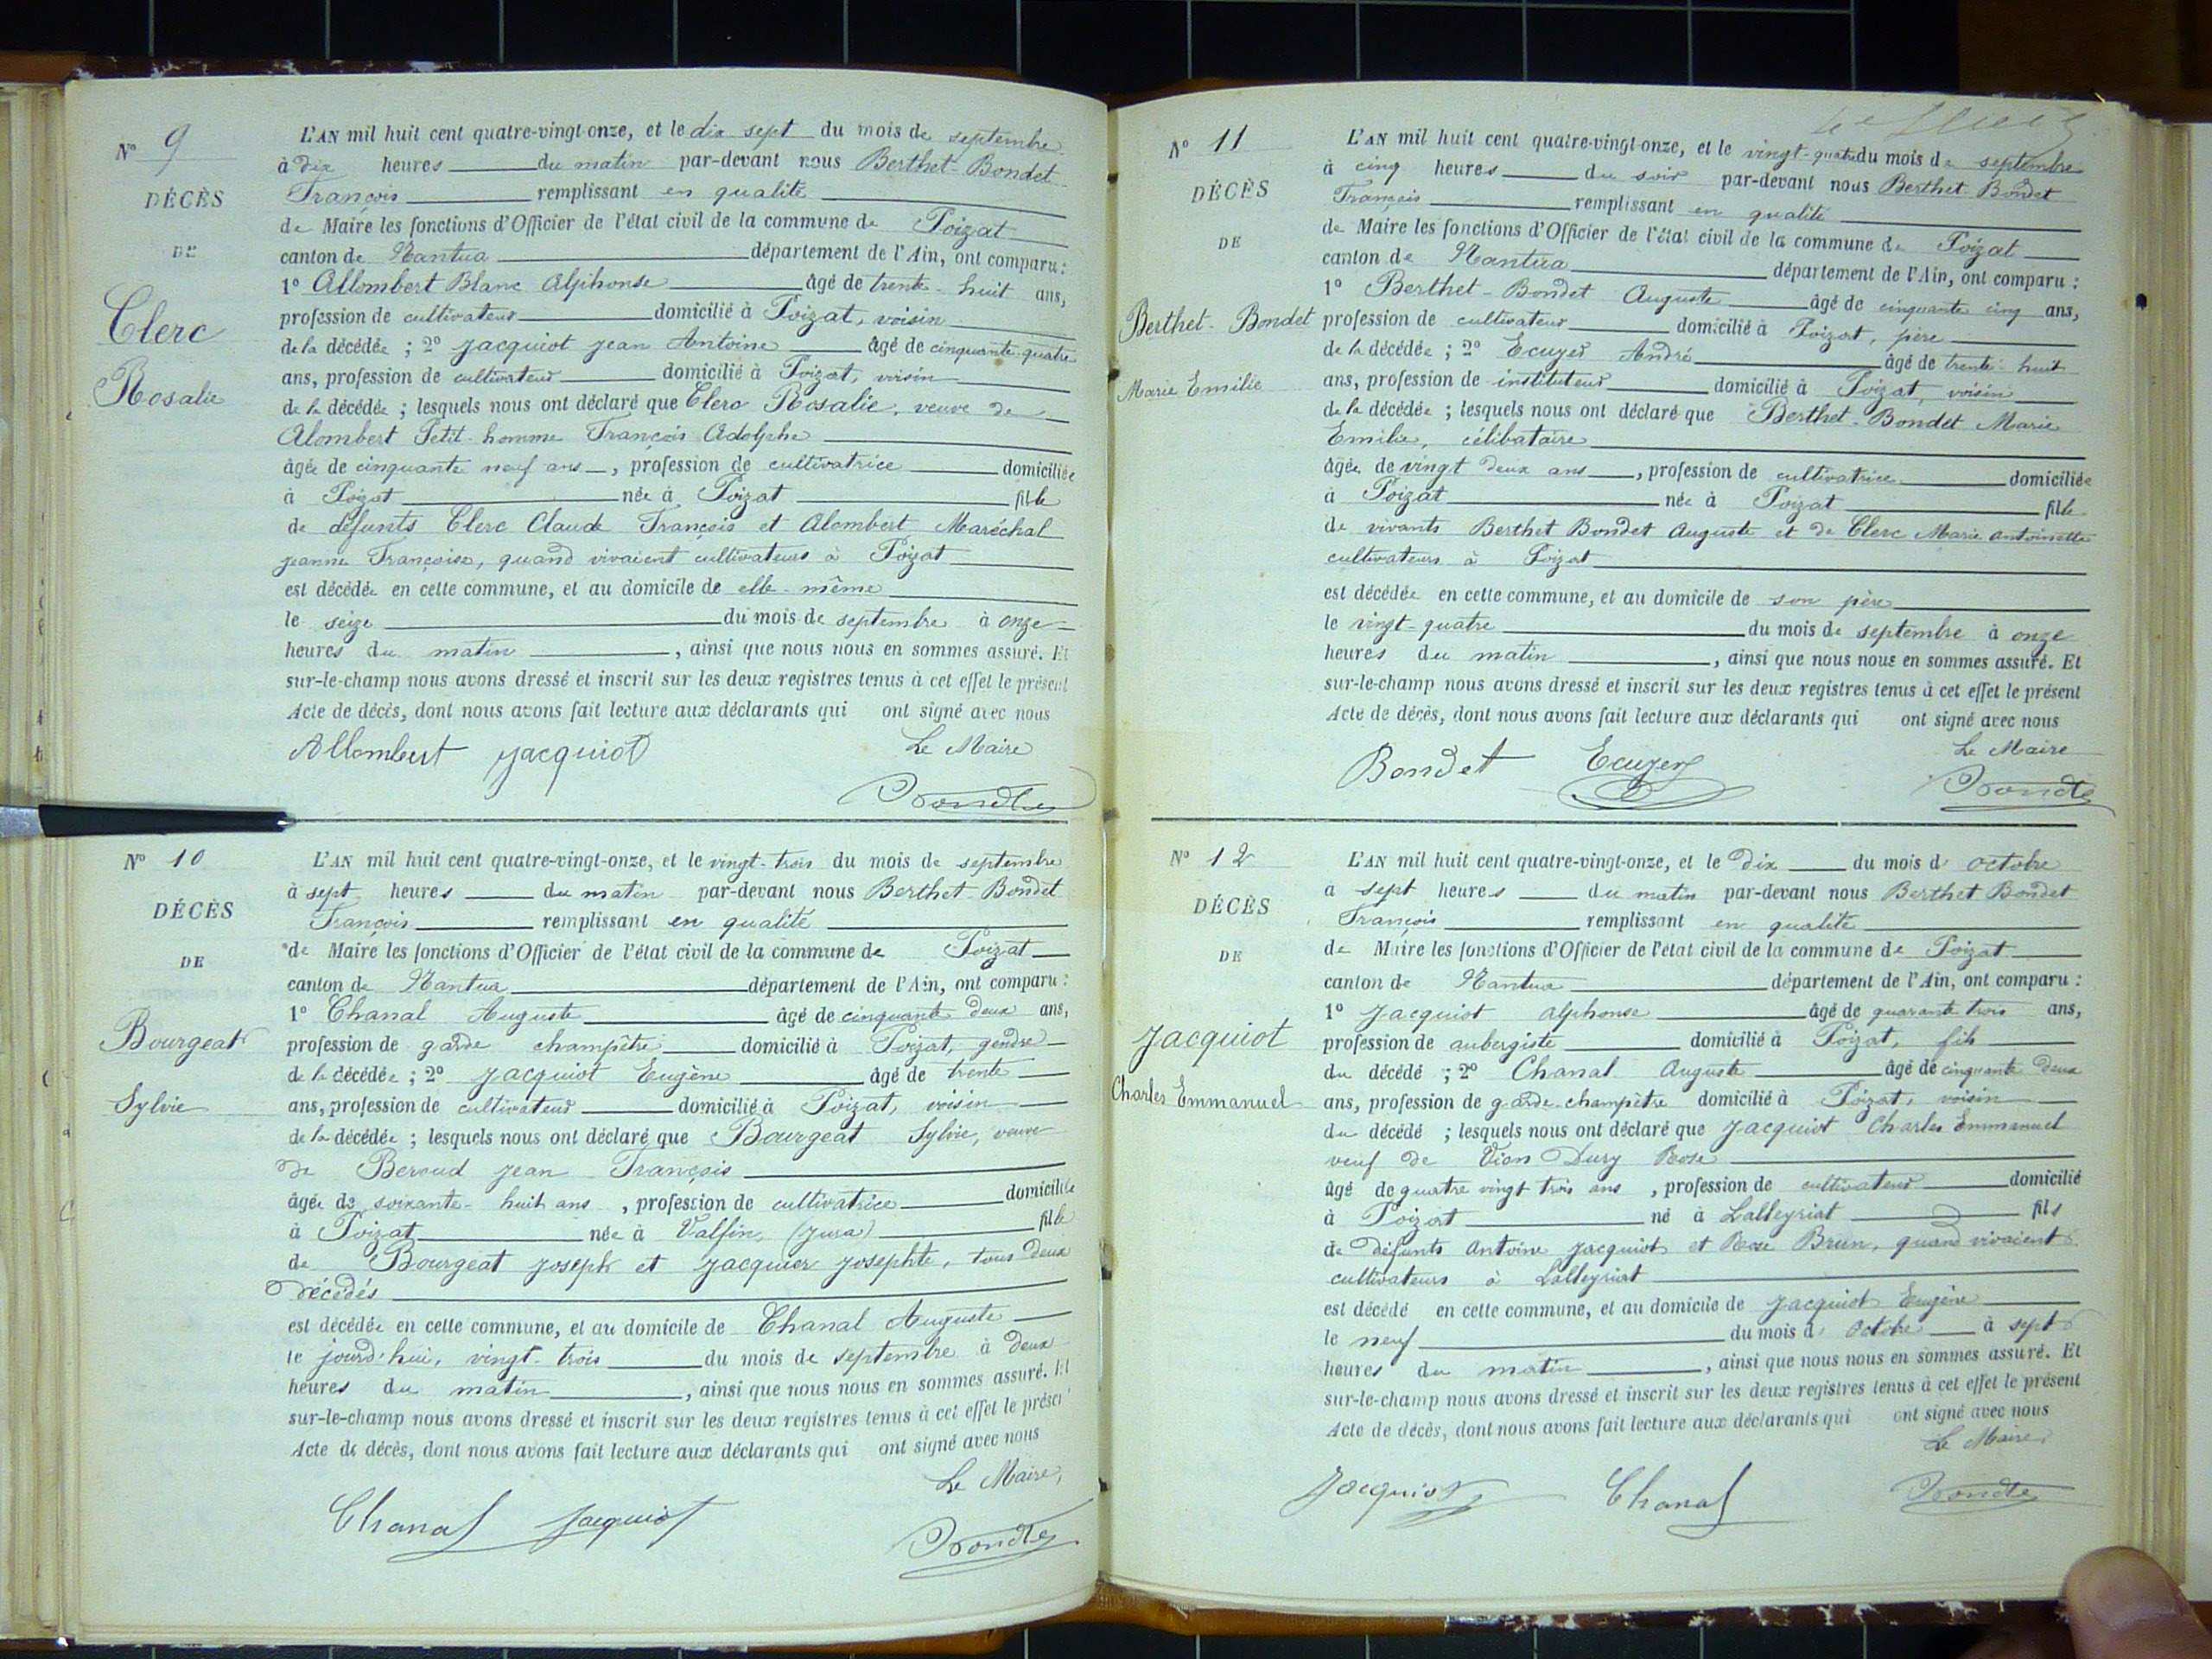 Nº 9
DÉCÈS
DE
Clerc
Rosalie
L'AN mil huit cent quatre-vingt-onze, et le dix sept du mois de septembre
à dix heures du matin par-devant nous Berthet-Bondet
François remplissant en qualité
de Maire les fonctions d'Officier de l'état civil de la commune de Poizat
canton de Nantua département de l'Ain, ont comparu :
1º Allombert Blanc Alphonse âgé de trente-huit ans,
profession de cultivateur domicilié à Poizat, voisin
de la décédée ; 2º Jacquiot Jean Antoine âgé de cinquante-quatre
ans, profession de cultivateur domicilié à Poizat, voisin
de la décédée ; lesquels nous ont déclaré que Clerc Rosalie, veuve de
Alombert Petit-homme François Adolphe
âgée de cinquante neuf ans, profession de cultivatrice domiciliée
à Poizat née à Poizat fille
de défunts Clerc Claude François et Alombert Maréchal
Jeanne Françoise, quand vivaient cultivateurs à Poizat
est décédée en cette commune, et au domicile de elle-même
le seize du mois de septembre à onze
heures du matin, ainsi que nous nous en sommes assuré. Et
sur-le-champ nous avons dressé et inscrit sur les deux registres tenus à cet effet le présent
Acte de décès, dont nous avons fait lecture aux déclarants qui ont signé avec nous
Allombert Jacquiot Le Maire
Nº 10
DÉCÈS
DE
Bourgeat
Sylvie
L'AN mil huit cent quatre-vingt-onze, et le vingt-trois du mois de septembre
à sept heures du matin par-devant nous Berthet-Bondet
François remplissant en qualité
de Maire les fonctions d'Officier de l'état civil de la commune de Poizat
canton de Nantua département de l'Ain, ont comparu :
1º Chanal Auguste âgé de cinquante deux ans,
profession de garde champêtre domicilié à Poizat, gendre
de la décédée ; 2º Jacquiot Eugène âgé de trente
ans, profession de cultivateur domicilié à Poizat, voisin
de la décédée ; lesquels nous ont déclaré que Bourgeat Sylvie, veuve
de Beroud Jean François
âgée de soixante-huit ans, profession de cultivatrice domiciliée
à Poizat née à Valfin (Jura) fille
de Bourgeat Joseph et Jacquier Josephte, tous deux
décédés
est décédée en cette commune, et au domicile de Chanal Auguste
le jourd'hui, vingt-trois du mois de septembre à deux
heures du matin, ainsi que nous nous en sommes assuré. Et
sur-le-champ nous avons dressé et inscrit sur les deux registres tenus à cet effet le présent
Acte de décès, dont nous avons fait lecture aux déclarants qui ont signé avec nous
Le Maire,
Chanal Jacquiot
Nº 11
DÉCÈS
DE
Berthet-Bondet
Marie Emilie
L'AN mil huit cent quatre-vingt-onze, et le vingt-quatre du mois de septembre
à cinq heures du soir par-devant nous Berthet Bondet
François remplissant en qualité
de Maire les fonctions d'Officier de l'état civil de la commune de Poizat
canton de Nantua département de l'Ain, ont comparu :
1º Berthet-Bondet Auguste âgé de cinquante cinq ans,
profession de cultivateur domicilié à Poizat, père
de la décédée ; 2º Ecuyer André âgé de trente-huit
ans, profession de instituteur domicilié à Poizat, voisin
de la décédée ; lesquels nous ont déclaré que Berthet-Bondet Marie
Emilie, célibataire
âgée de vingt deux ans, profession de cultivatrice domiciliée
à Poizat née à Poizat fille
de vivants Berthet Bondet Auguste et de Clerc Marie Antoinette
cultivateurs à Poizat
est décédée en cette commune, et au domicile de son père
le vingt-quatre du mois de septembre à onze
heures du matin, ainsi que nous nous en sommes assuré. Et
sur-le-champ nous avons dressé et inscrit sur les deux registres tenus à cet effet le présent
Acte de décès, dont nous avons fait lecture aux déclarants qui ont signé avec nous
Le Maire
Bondet Ecuyer
Nº 12
DÉCÈS
DE
Jacquiot
Charles Emmanuel
L'AN mil huit cent quatre-vingt-onze, et le dix du mois d' octobre
à sept heures du matin par-devant nous Berthet Bondet
François remplissant en qualité
de Maire les fonctions d'Officier de l'état civil de la commune de Poizat
canton de Nantua département de l'Ain, ont comparu :
1º Jacquiot Alphonse âgé de quarante trois ans,
profession de aubergiste domicilié à Poizat, fils
du décédé ; 2º Chanal Auguste âgé de cinquante deux
ans, profession de garde-champêtre domicilié à Poizat, voisin
du décédé ; lesquels nous ont déclaré que Jacquiot Charles Emmanuel
veuf de Vion Dury Rose
âgé de quatre vingt trois ans, profession de cultivateur domicilié
à Poizat né à Lalleyriat fils
de défunts Antoine Jacquiot et Rose Brun, quand vivaient
cultivateurs à Lalleyriat
est décédé en cette commune, et au domicile de Jacquiot Eugène
le neuf du mois d' Octobre à sept
heures du matin, ainsi que nous nous en sommes assuré. Et
sur-le-champ nous avons dressé et inscrit sur les deux registres tenus à cet effet le présent
Acte de décès, dont nous avons fait lecture aux déclarants qui ont signé avec nous
Le Maire
Jacquiot Chanal